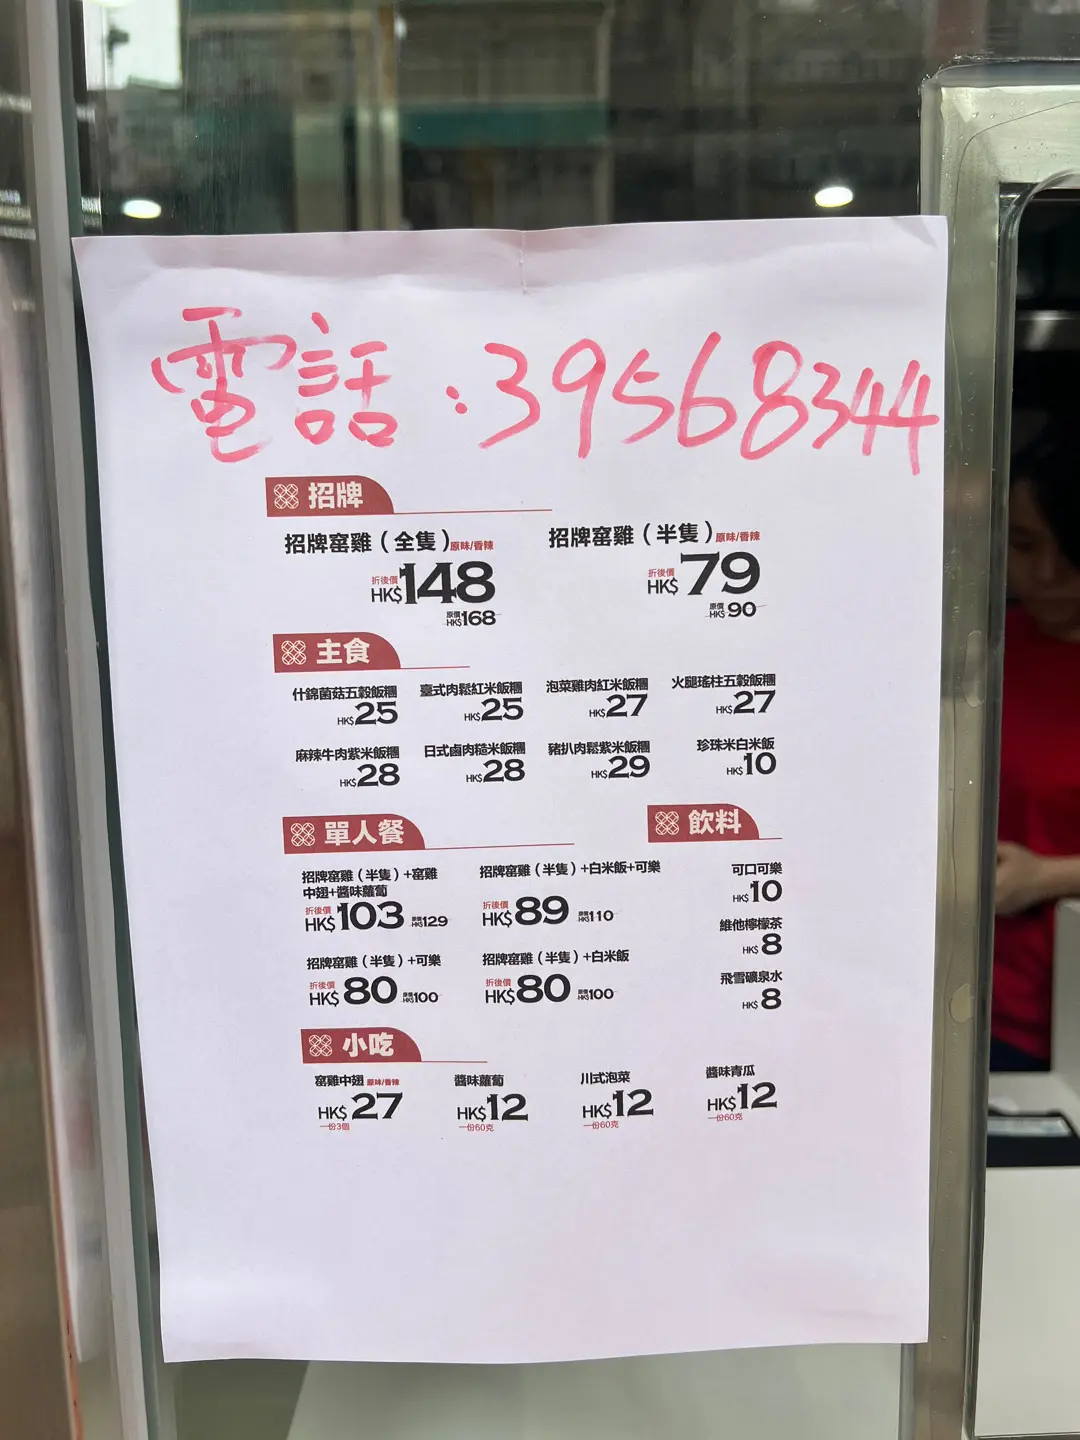 電話：39568344
招牌
招牌窑雞（全隻）原味/香辣
折後價
HK$148
原價
HK$168
招牌窑雞（半隻）原味/香辣
折後價
HK$79
原價
HK$90
主食
什錦菌菇五穀飯糰
HK$25
臺式肉鬆紅米飯糰
HK$25
泡菜雞肉紅米飯糰
HK$27
火腿瑤柱五穀飯糰
HK$27
麻辣牛肉紫米飯糰
HK$28
日式鹵肉糙米飯糰
HK$28
豬扒肉鬆紫米飯糰
HK$29
珍珠米白米飯
HK$10
單人餐
招牌窑雞（半隻）+窑雞
中翅+醬味蘿蔔
折後價
HK$103
原價
HK$129
招牌窑雞（半隻）+白米飯+可樂
折後價
HK$89
原價
HK$110
招牌窑雞（半隻）+可樂
折後價
HK$80
原價
HK$100
招牌窑雞（半隻）+白米飯
折後價
HK$80
原價
HK$100
飲料
可口可樂
HK$10
維他檸檬茶
HK$8
飛雪礦泉水
HK$8
小吃
窑雞中翅 原味/香辣
HK$27
一份3個
醬味蘿蔔
HK$12
一份60克
川式泡菜
HK$12
一份60克
醬味青瓜
HK$12
一份60克